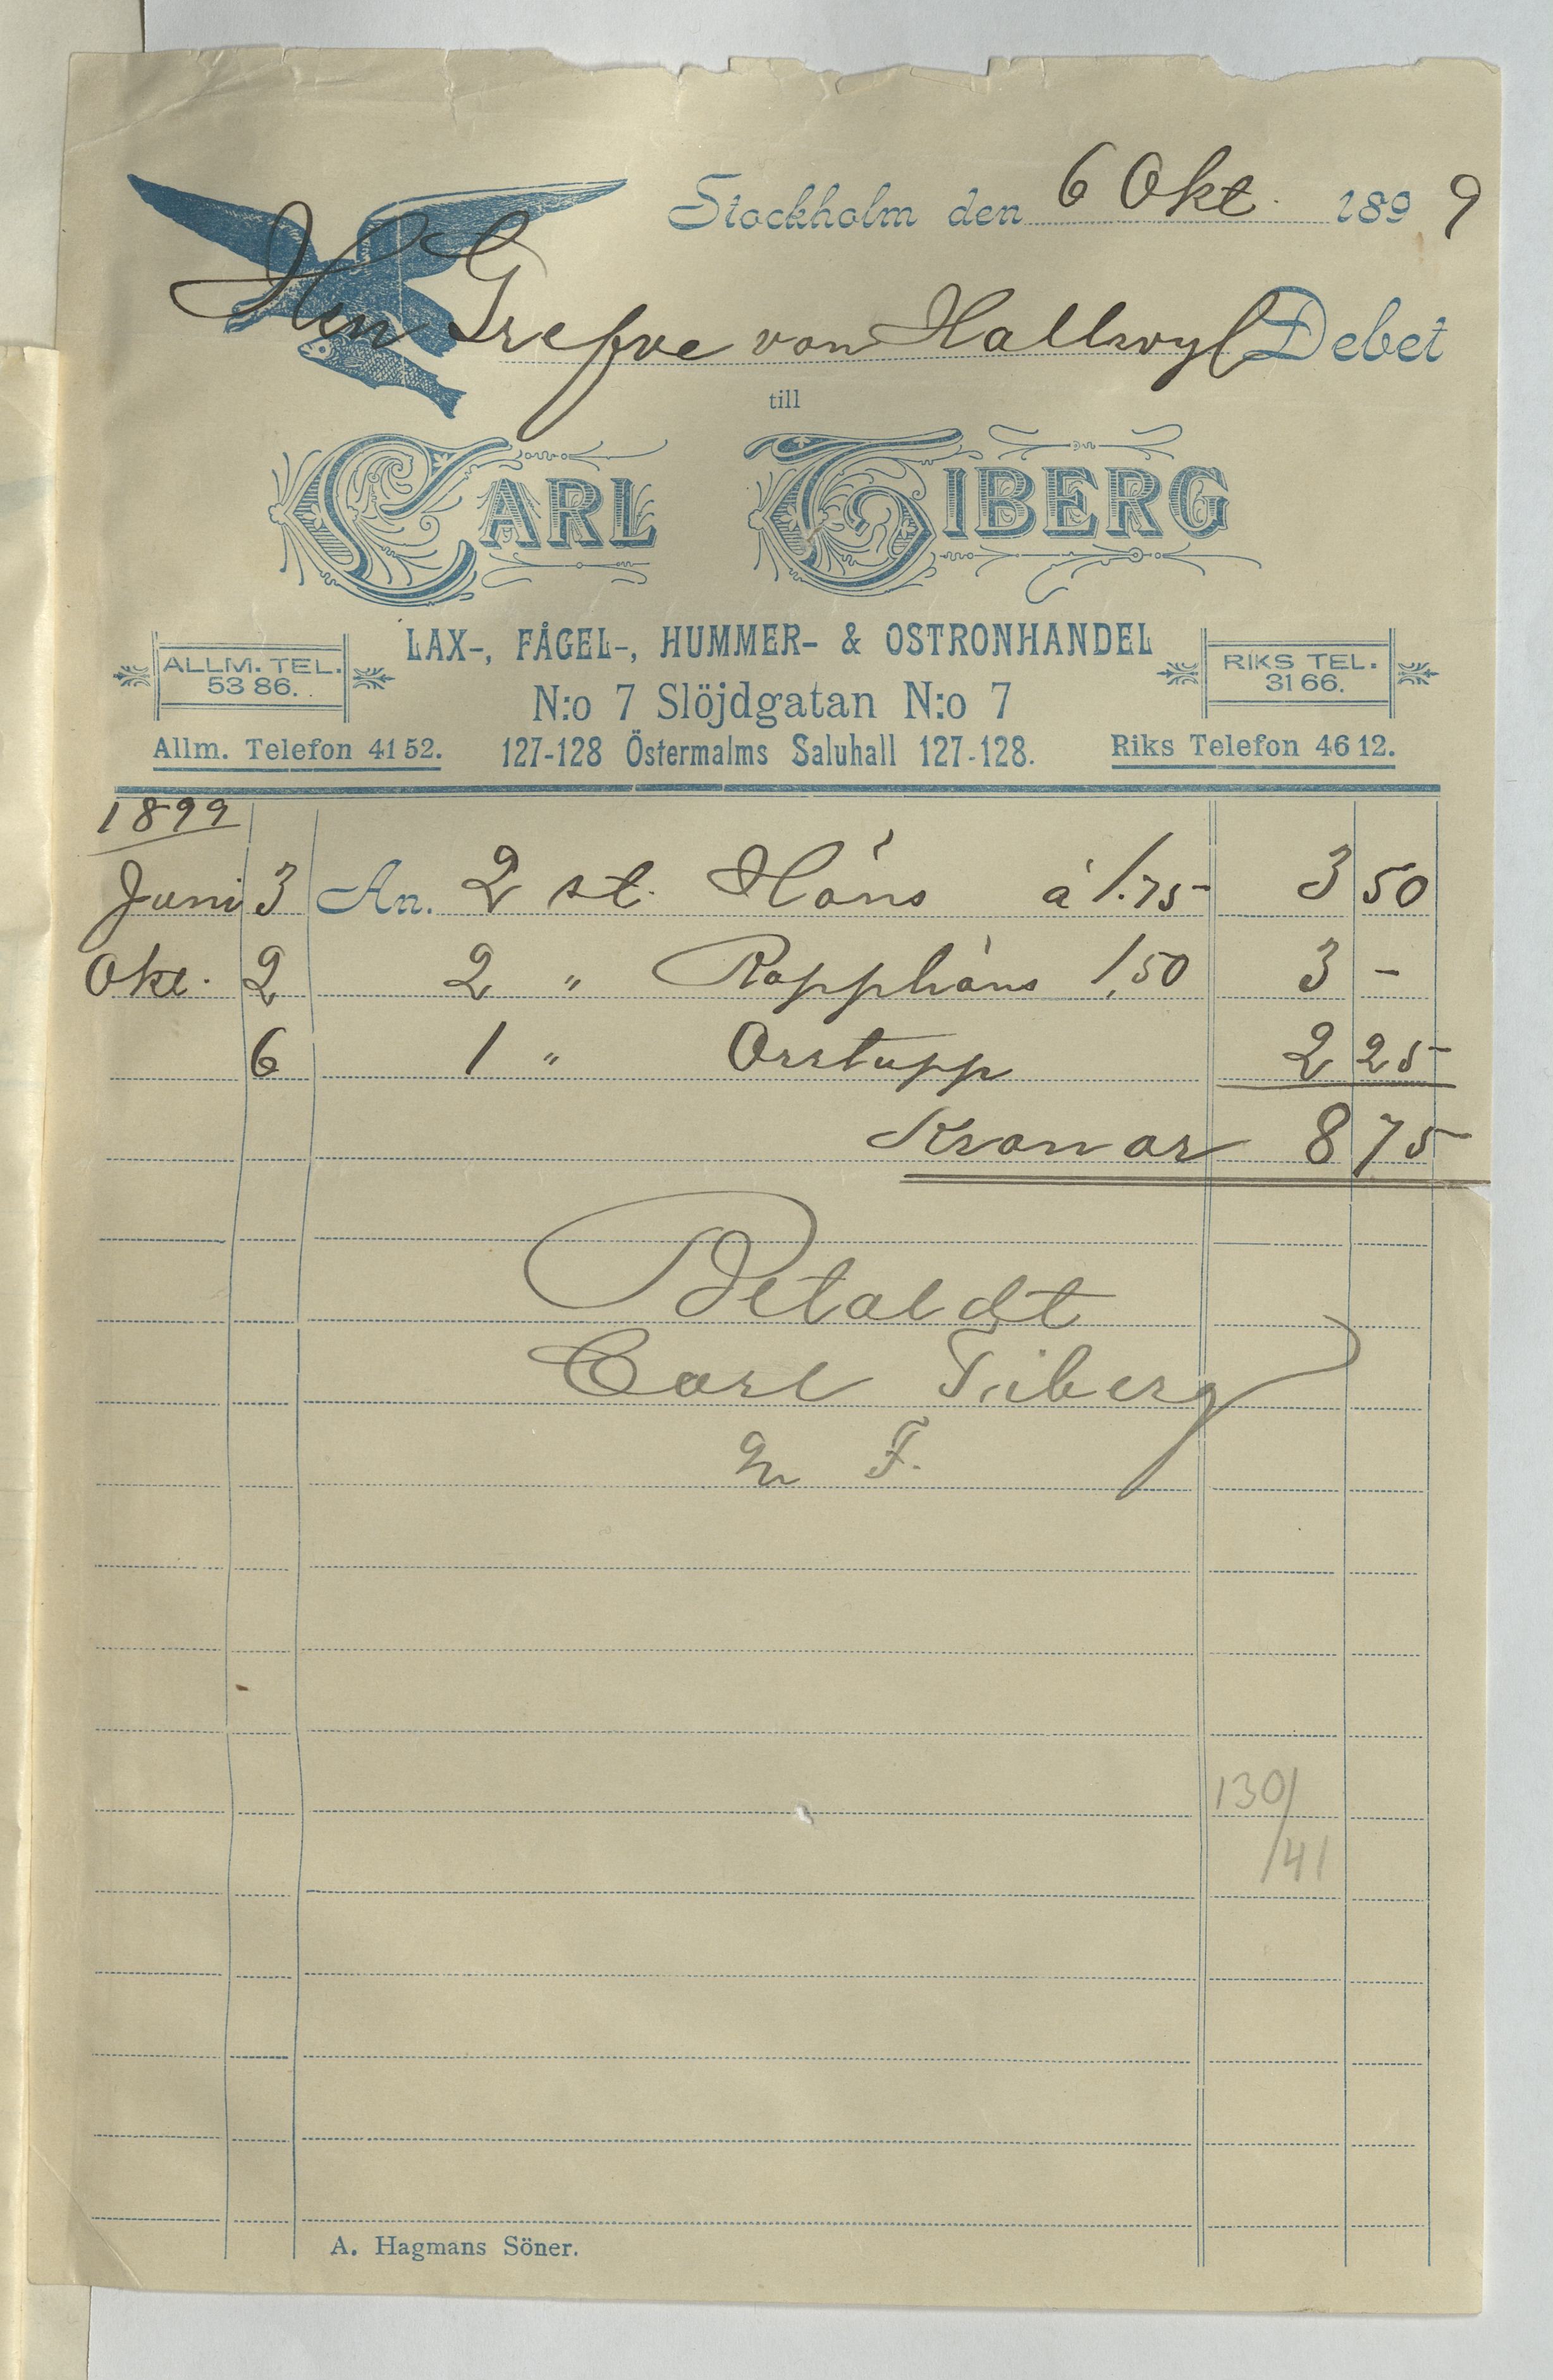 Stockholm den 6 Okt. 1899
Herr Grefve von Hallwyl Debet
till
CARL TIBERG
LAX-, FÅGEL-, HUMMER- & OSTRONHANDEL
ALLM. TEL. 5386.
RIKS TEL. 3166.
N:o 7 Slöjdgatan N:o 7
Allm. Telefon 4152. 127-128 Östermalms Saluhall 127-128. Riks Telefon 4612.
1899
Juni 3 An. 2 st. Höns à 1.75 3 50
Okt. 2 2 " Rapphöns 1,50 3 -
6 1 " Orrtupp 2 25
Kronor 8 75
Betaldt
Carl Tiberg
F.
130/
/41
A. Hagmans Söner.